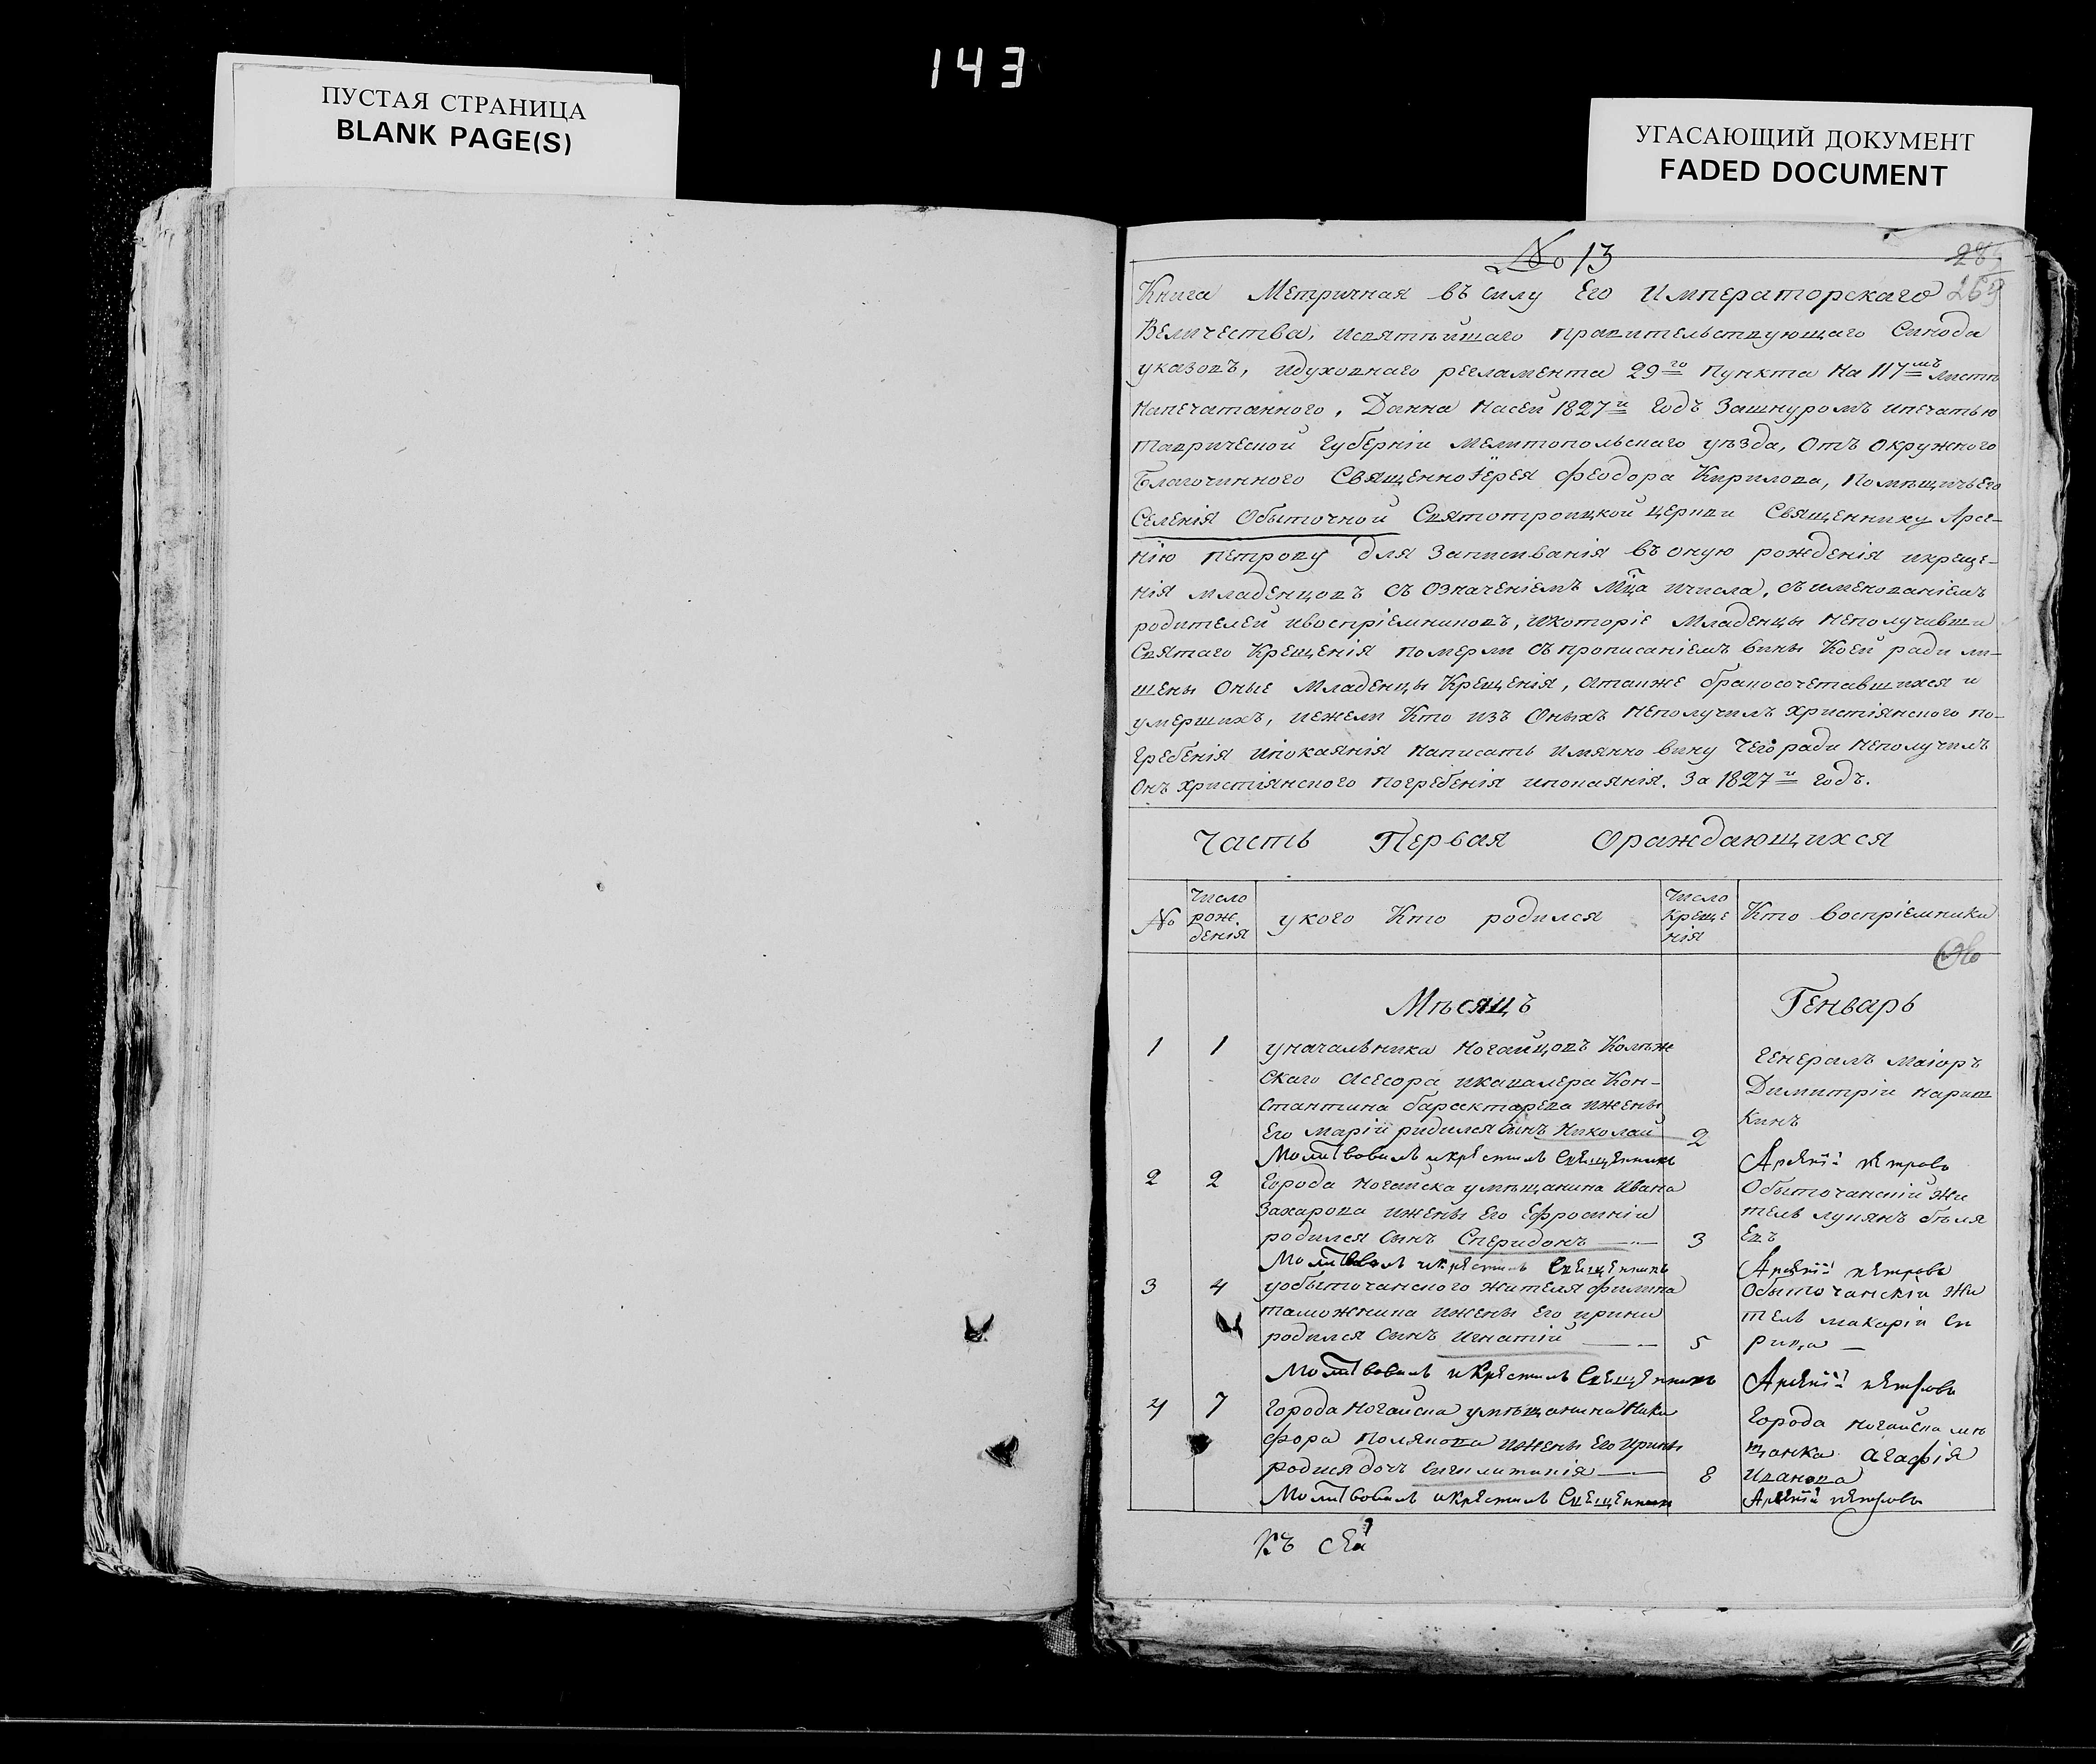 143
ПУСТАЯ СТРАНИЦА
BLANK PAGE(S)
УГАСАЮЩИЙ ДОКУМЕНТ
FADED DOCUMENT
№ 13
269
Книга Метричная въ силу Его Императорскаго
Величества, исвятѣйшаго правительствующаго Синода
указовъ, идуховнаго регламента 29го пункта на 117мъ листѣ
напечатанного, Данна насей 1827й годъ Зашнуромъ ипечатью
таврической губерніи мелитопольскаго уѣзда, отъ окружного
Благочинного Священноіерея Феодора Кирилова, помѣщичьего
селенія Обыточной Святотроицкой церкви Священнику Арсе-
нію петрову для Записыванія въ оную рожденія икреще-
нія младенцовъ съ означеніемъ мца ичисла, съименованіемъ
родителей ивоспріемниковъ, икоторіе Младенцы неполучивши
Святаго Крещенія померли съпрописаніемъ вины Коей ради ли-
шены оные Младенцы Крещенія, атакже бракосочетавшихся и
умершихъ, иежели Кто изъ оныхъ неполучилъ христіянского по-
гребенія ипокаянія написать имянно вину чего ради неполучилъ
онъ христіянского погребенія ипокаянія. За 1827й годъ.
Часть Первая Ораждающихся
№
Число рож дения
укого Кто родился
Число Креще нія
Кто воспріемники
Мѣсяцъ Генварь
1 1 уначальника ногайцовъ Колѣже
скаго асесора икавалера Кон-
стантина барактарева ижены
Его маріи родился сынъ Николай 2
генералъ маіоръ
Димитрій нариш
кинъ
Молитвовалъ икрестилъ Священникъ Арсеній петровъ
2 2 города ногайска умѣщанина Ивана
Захарова ижены Его Ефросиніи
родился сынъ Спиридонъ 3
Обыточанскій жи
тель лукянъ бѣля
евъ
Молитвовалъ икрестилъ Священникъ Арсеній петровъ
3 4 уобыточанского жителя филипа
таможника ижены Его ирины
родился сынъ игнатій 5
Обыточанскій жи
тель макарій
Молитвовалъ икрестилъ Священникъ Арсеній петровъ
4 7 города ногайска умѣщанина Ники
фора полякова ижены Его ирины
родися дочъ 8
города ногайска мѣ
щанка агафія
иванова
Молитвовалъ икрестилъ Священникъ Арсеній петровъ
Къ сей